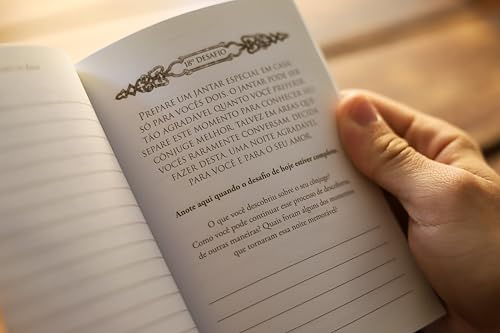 18º DESAFIO
PREPARE UM JANTAR ESPECIAL EM CASA,
SÓ PARA VOCÊS DOIS. O JANTAR PODE SER
TÃO AGRADÁVEL QUANTO VOCÊ PREFERIR.
SEPARE ESTE MOMENTO PARA CONHECER SEU
CÔNJUGE MELHOR, TALVEZ EM ÁREAS QUE
VOCÊS RARAMENTE CONVERSAM. DECIDA
FAZER DESTA, UMA NOITE AGRADÁVEL
PARA VOCÊ E PARA O SEU AMOR.
Anote aqui quando o desafio de hoje estiver completo.
O que você descobriu sobre o seu cônjuge?
Como você pode continuar esse processo de descoberta
de outras maneiras? Quais foram alguns dos momentos
que tornaram essa noite memorável?